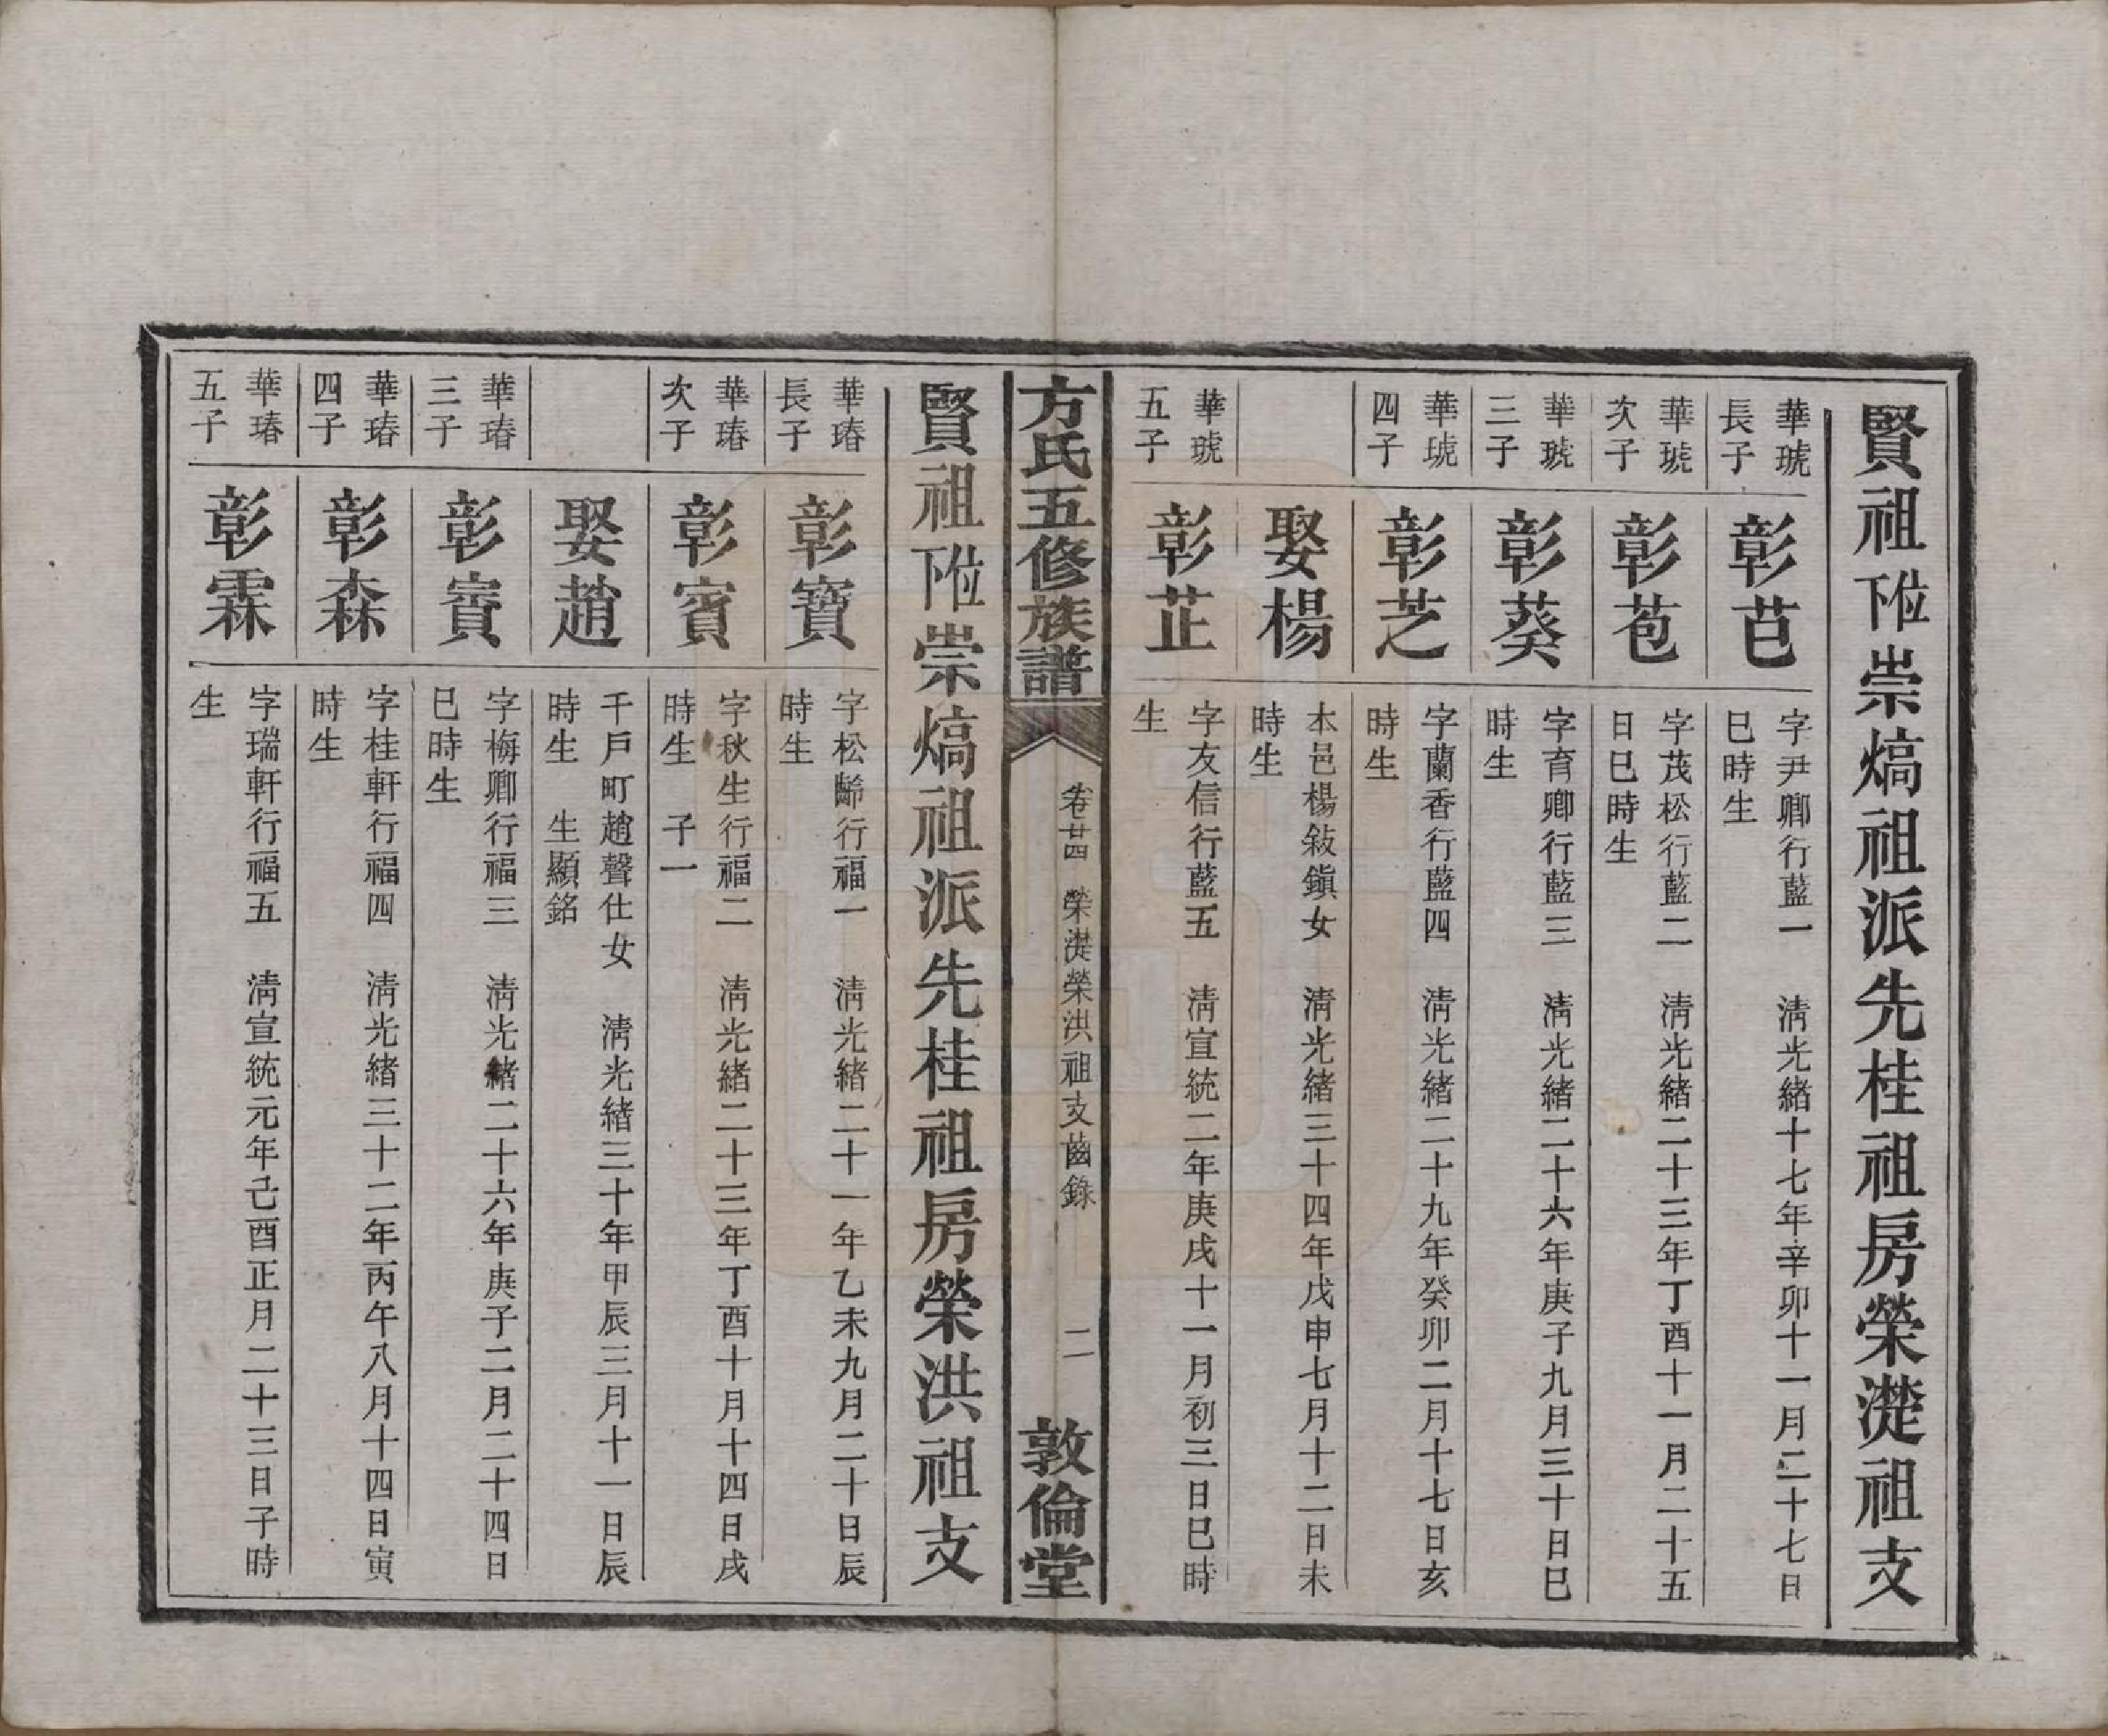 賢祖阼崇熇祖派先桂祖房榮㴾祖支
華琥
長子
彰芑
字尹卿行藍一　淸光緒十七年辛卯十一月二十七日
巳時生
華琥
次子
彰苞
字茂松行藍二　淸光緒二十三年丁酉十一月二十五
日巳時生
華琥
三子
彰葵
字育卿行藍三　淸光緒二十六年庚子九月三十日巳
時生
華琥
四子
彰芝
字蘭香行藍四　淸光緒二十九年癸卯二月十七日亥
時生
娶楊
本邑楊敍鎭女　淸光緒三十四年戊申七月十二日未
時生
華琥
五子
彰芷
字友信行藍五　淸宣統二年庚戌十一月初三日巳時
生
方氏五修族譜
卷廿四　榮㴾榮洪祖支齒錄
二
敦倫堂
賢祖阼崇熇祖派先桂祖房榮洪祖支
華瑃
長子
彰寶
字松齡行福一　淸光緒二十一年乙未九月二十日辰
時生
華瑃
次子
彰賓
字秋生行福二　淸光緒二十三年丁酉十月十四日戌
時生　子一
娶趙
千戶町趙聲仕女　淸光緒三十年甲辰三月十一日辰
時生　生顯銘
華瑃
三子
彰賨
字梅卿行福三　淸光緒二十六年庚子二月二十四日
巳時生
華瑃
四子
彰森
字桂軒行福四　淸光緒三十二年丙午八月十四日寅
時生
華瑃
五子
彰霖
字瑞軒行福五　淸宣統元年己酉正月二十三日子時
生